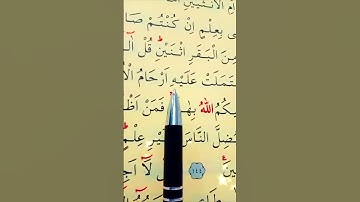 اَمِ الْاُنْثَيَيْنِ
ى بِعِلْمٍ اِنْ كُنْتُمْ صَا
مِنَ الْبَقَرِ اثْنَيْنِ قُلْ
تَمَلَتْ عَلَيْهِ اَرْحَامُ الْا
يكُمُ اللّٰهُ بِهٰذَا فَمَنْ اَظْ
لِيُضِلَّ النَّاسَ بِغَيْرِ عِلْمٍ
ينَ ١٤٤ قُلْ لَآ اَجِ